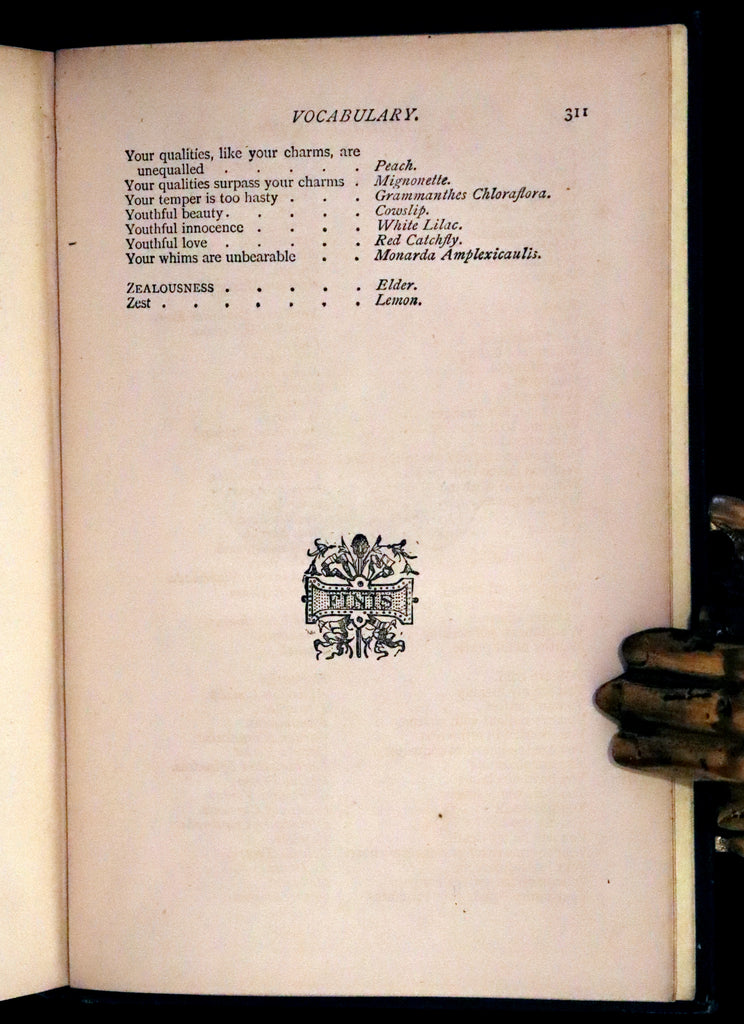 VOCABULARY. 311
Your qualities, like your charms, are
unequalled . . . . . Peach.
Your qualities surpass your charms . Mignonette.
Your temper is too hasty . . . Grammanthes Chloraflora.
Youthful beauty . . . . . Cowslip.
Youthful innocence . . . . White Lilac.
Youthful love . . . . . Red Catchfly.
Your whims are unbearable . . Monarda Amplexicaulis.
ZEALOUSNESS . . . . . Elder.
Zest . . . . . . . Lemon.
FINIS